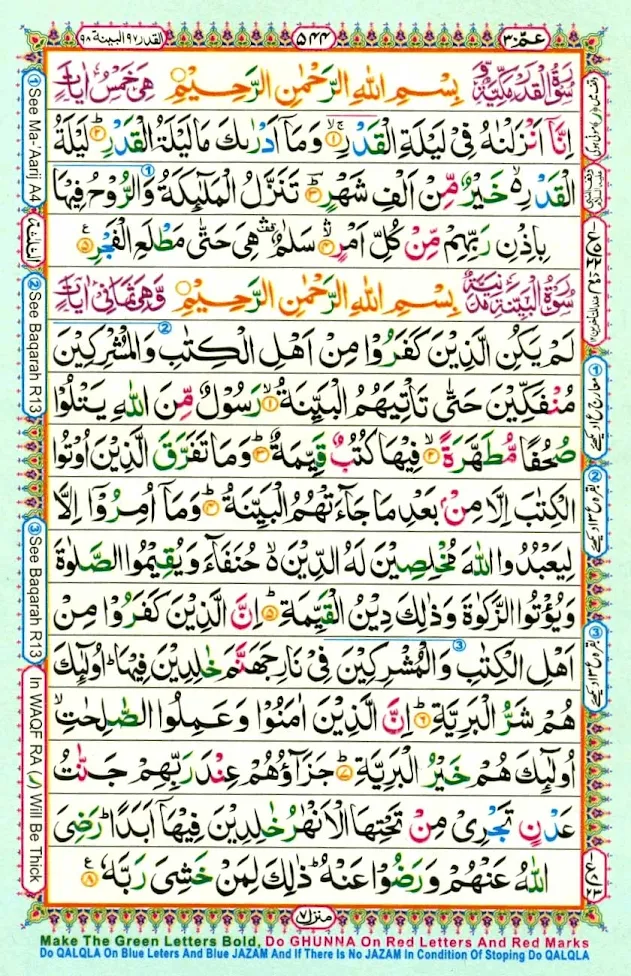 القدر ٩٧ البينة ٩٨
٥٤٤
عمّ ٣٠
سُوْرَةُ الْقَدْرِ مَكِّيَّةٌ بِسْمِ اللهِ الرَّحْمٰنِ الرَّحِيْمِ هِيَ خَمْسُ اٰيَاتٍ
اِنَّاۤ اَنْزَلْنٰهُ فِيْ لَيْلَةِ الْقَدْرِ ۚۖ‏ ۝۱ وَمَاۤ اَدْرٰىكَ مَا لَيْلَةُ الْقَدْرِ ؕ ۝۲ لَيْلَةُ
الْقَدْرِ ۙ خَيْرٌ مِّنْ اَلْفِ شَهْرٍ ؕ ۝۳ تَنَزَّلُ الْمَلٰٓئِكَةُ وَالرُّوْحُ فِيْهَا
بِاِذْنِ رَبِّهِمْ مِّنْ كُلِّ اَمْرٍ ۙ ۝۴ سَلٰمٌ ۛ هِيَ حَتّٰى مَطْلَعِ الْفَجْرِ ۝۵
سُوْرَةُ الْبَيِّنَةِ مَدَنِيَّةٌ بِسْمِ اللهِ الرَّحْمٰنِ الرَّحِيْمِ وَّهِيَ ثَمَانِيْ اٰيَاتٍ
لَمْ يَكُنِ الَّذِيْنَ كَفَرُوْا مِنْ اَهْلِ الْكِتٰبِ وَالْمُشْرِكِيْنَ
مُنْفَكِّيْنَ حَتّٰى تَاْتِيَهُمُ الْبَيِّنَةُ ۙ ۝۱ رَسُوْلٌ مِّنَ اللهِ يَتْلُوْا
صُحُفًا مُّطَهَّرَةً ۙ ۝۲ فِيْهَا كُتُبٌ قَيِّمَةٌ ؕ ۝۳ وَمَا تَفَرَّقَ الَّذِيْنَ اُوْتُوا
الْكِتٰبَ اِلَّا مِنْۢ بَعْدِ مَا جَآءَتْهُمُ الْبَيِّنَةُ ؕ ۝۴ وَمَاۤ اُمِرُوْۤا اِلَّا
لِيَعْبُدُوا اللهَ مُخْلِصِيْنَ لَهُ الدِّيْنَ ۙ حُنَفَآءَ وَيُقِيْمُوا الصَّلٰوةَ
وَيُؤْتُوا الزَّكٰوةَ وَذٰلِكَ دِيْنُ الْقَيِّمَةِ ؕ ۝۵ اِنَّ الَّذِيْنَ كَفَرُوْا مِنْ
اَهْلِ الْكِتٰبِ وَالْمُشْرِكِيْنَ فِيْ نَارِ جَهَنَّمَ خٰلِدِيْنَ فِيْهَا ؕ اُولٰٓئِكَ
هُمْ شَرُّ الْبَرِيَّةِ ؕ ۝۶ اِنَّ الَّذِيْنَ اٰمَنُوْا وَعَمِلُوا الصّٰلِحٰتِ ۙ
اُولٰٓئِكَ هُمْ خَيْرُ الْبَرِيَّةِ ؕ ۝۷ جَزَآؤُهُمْ عِنْدَ رَبِّهِمْ جَنّٰتُ
عَدْنٍ تَجْرِيْ مِنْ تَحْتِهَا الْاَنْهٰرُ خٰلِدِيْنَ فِيْهَاۤ اَبَدًا ؕ رَضِيَ
اللهُ عَنْهُمْ وَرَضُوْا عَنْهُ ؕ ذٰلِكَ لِمَنْ خَشِيَ رَبَّهٗ ۝۸
منزل ٧
① See Ma-'Aarij A4
② See Baqarah R13
③ See Baqarah R13
In WAQF RA (ر) Will Be Thick
Make The Green Letters Bold, Do GHUNNA On Red Letters And Red Marks
Do QALQLA On Blue Leters And Blue JAZAM And If There Is No JAZAM In Condition Of Stoping Do QALQLA